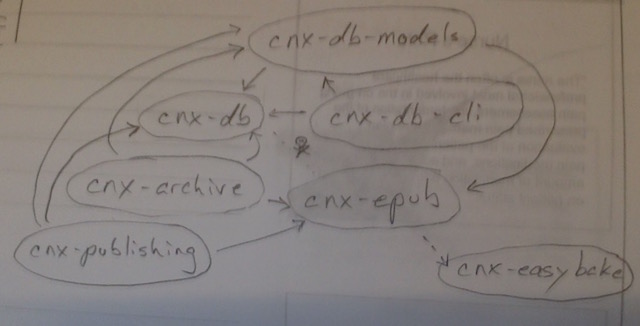 cnx-db-models
cnx-db
cnx-db-cli
cnx-archive
cnx-epub
cnx-publishing
cnx-easybake